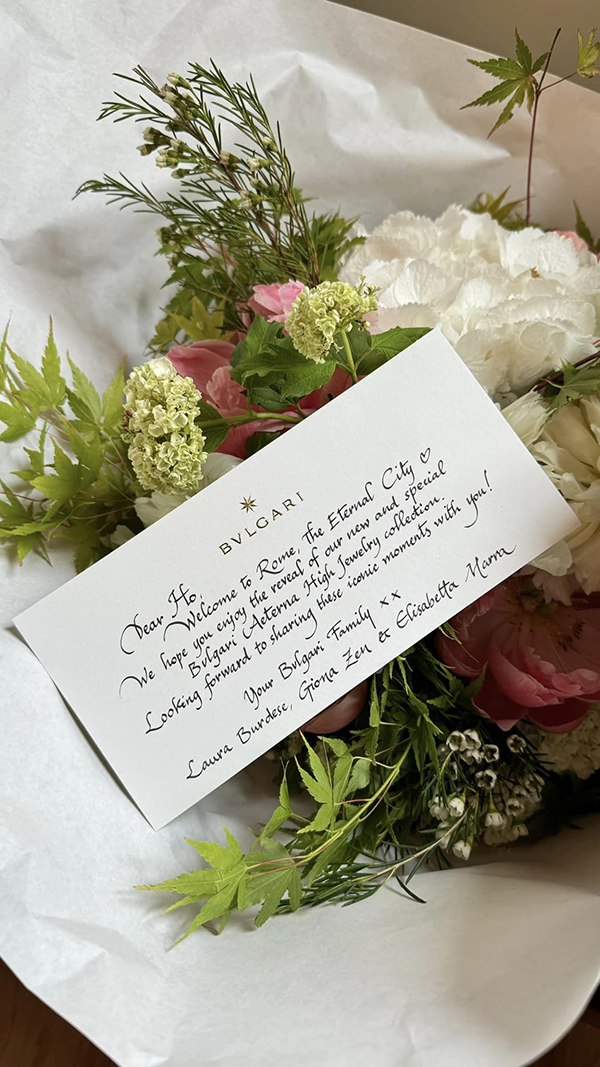 BVLGARI
Dear Ho,
Welcome to Rome, the Eternal City ♡
We hope you enjoy the reveal of our new and special
Bvlgari Aeterna High Jewelry collection.
Looking forward to sharing these iconic moments with you!
Your Bvlgari Family xx
Laura Burdese, Giona Zen & Elisabetta Marra